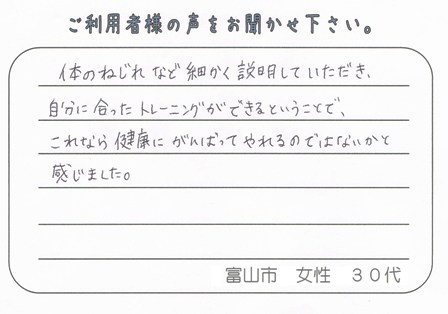 ご利用者様の声をお聞かせ下さい。
体のねじれなど細かく説明していただき、
自分に合ったトレーニングができるということで、
これなら健康にがんばってやれるのではないかと
感じました。
富山市 女性 30代